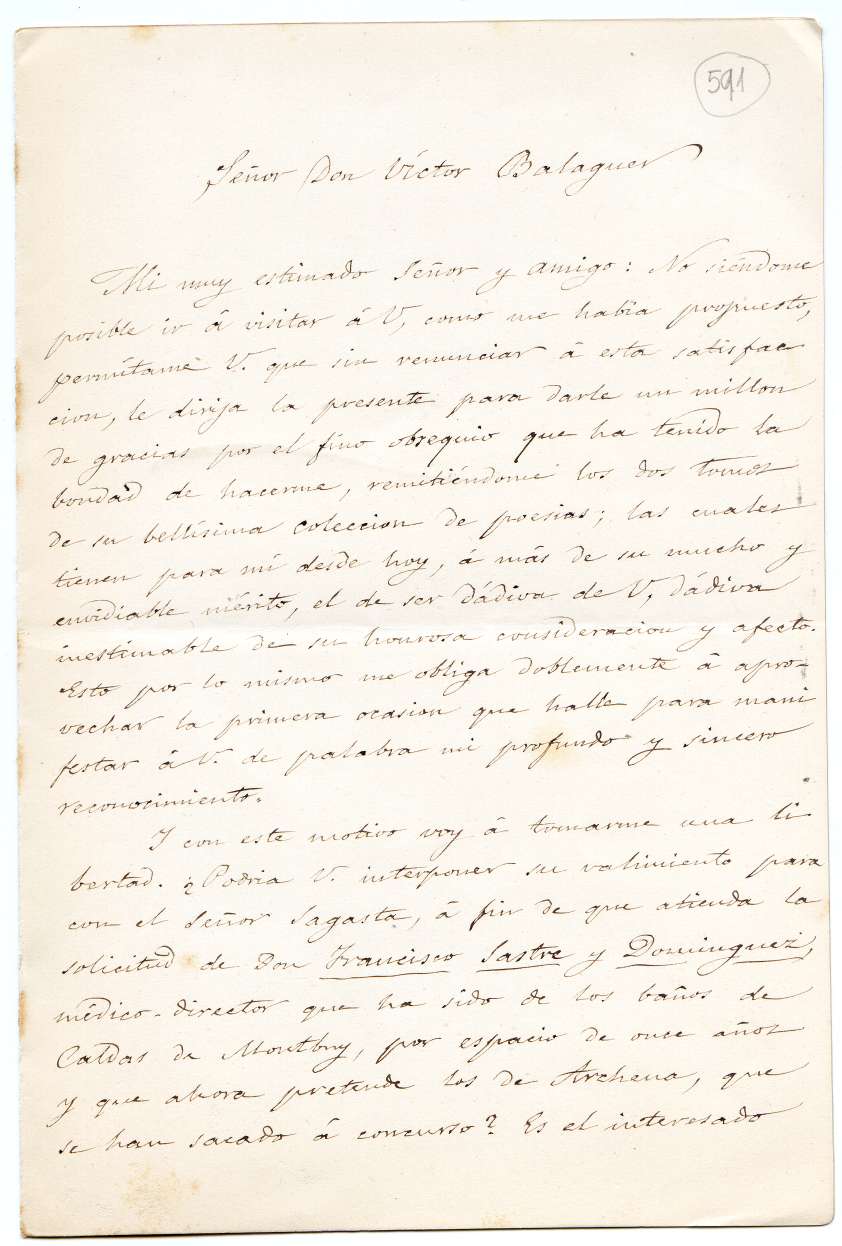 591
Señor Don Víctor Balaguer
Mi muy estimado Señor y amigo: No siéndome
posible ir á visitar á V, como me había propuesto,
permítame V. que sin renunciar á esta satisfac
cion, le dirija la presente para darle un millon
de gracias por el fino obsequio que ha tenido la
bondad de hacerme, remitiéndome los dos tomos
de su bellísima coleccion de poesias; las cuales
tienen para mí desde hoy, á más de su mucho y
envidiable mérito, el de ser dádiva de V, dádiva
inestimable de su honrosa consideracion y afecto.
Esto por lo mismo me obliga doblemente á apro-
vechar la primera ocasion que halle para mani
festar á V. de palabra mi profundo y sincero
reconocimiento.
Y con este motivo voy á tomarme una li
bertad. ¿Podria V. interponer su valimiento para
con el Señor Sagasta, á fin de que atienda la
solicitud de Don Francisco Sastre y Dominguez,
médico-director que ha sido de los baños de
Caldas de Montbuy, por espacio de once años
y que ahora pretende los de Archena, que
se han sacado á concurso? Es el interesado